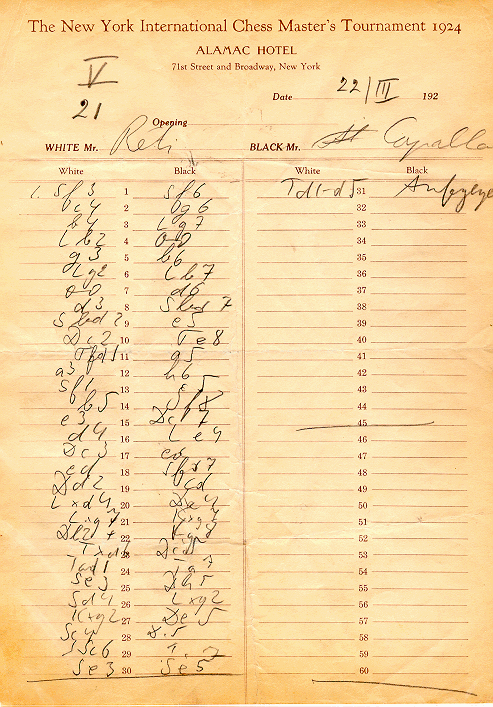 The New York International Chess Master's Tournament 1924
ALAMAC HOTEL
71st Street and Broadway, New York
V
21
Date 22/III 192
Opening
WHITE Mr. Reti BLACK Mr.
White Black White Black
1. Sf3 1 Sf6 Td1-d5 31
c4 2 g6 32
b4 3 Lg7 33
Lb2 4 0-0 34
g3 5 b6 35
Lg2 6 Lb7 36
0-0 7 d6 37
d3 8 Sbd7 38
Sbd2 9 e5 39
Dc2 10 Te8 40
Tfd1 11 a5 41
a3 12 h6 42
Sf1 13 c5 43
b5 14 44
e3 15 Dc7 45
d4 16 Le4 46
Dc3 17 ed 47
ed 18 48
Dd2 19 cd 49
Lxd4 20 50
Lxg7 21 Kxg7 51
22 Kg8 52
53
Tad1 24 54
Se3 25 Dh5 55
Sd4 26 Lxg2 56
Kxg2 27 De5 57
Sc4 28 58
Sc6 29 59
Se3 30 Se5 60